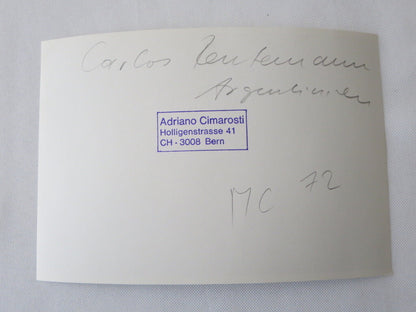 Carlos Reutemann
Argentinien
Adriano Cimarosti
Holligenstrasse 41
CH - 3008 Bern
MC 72